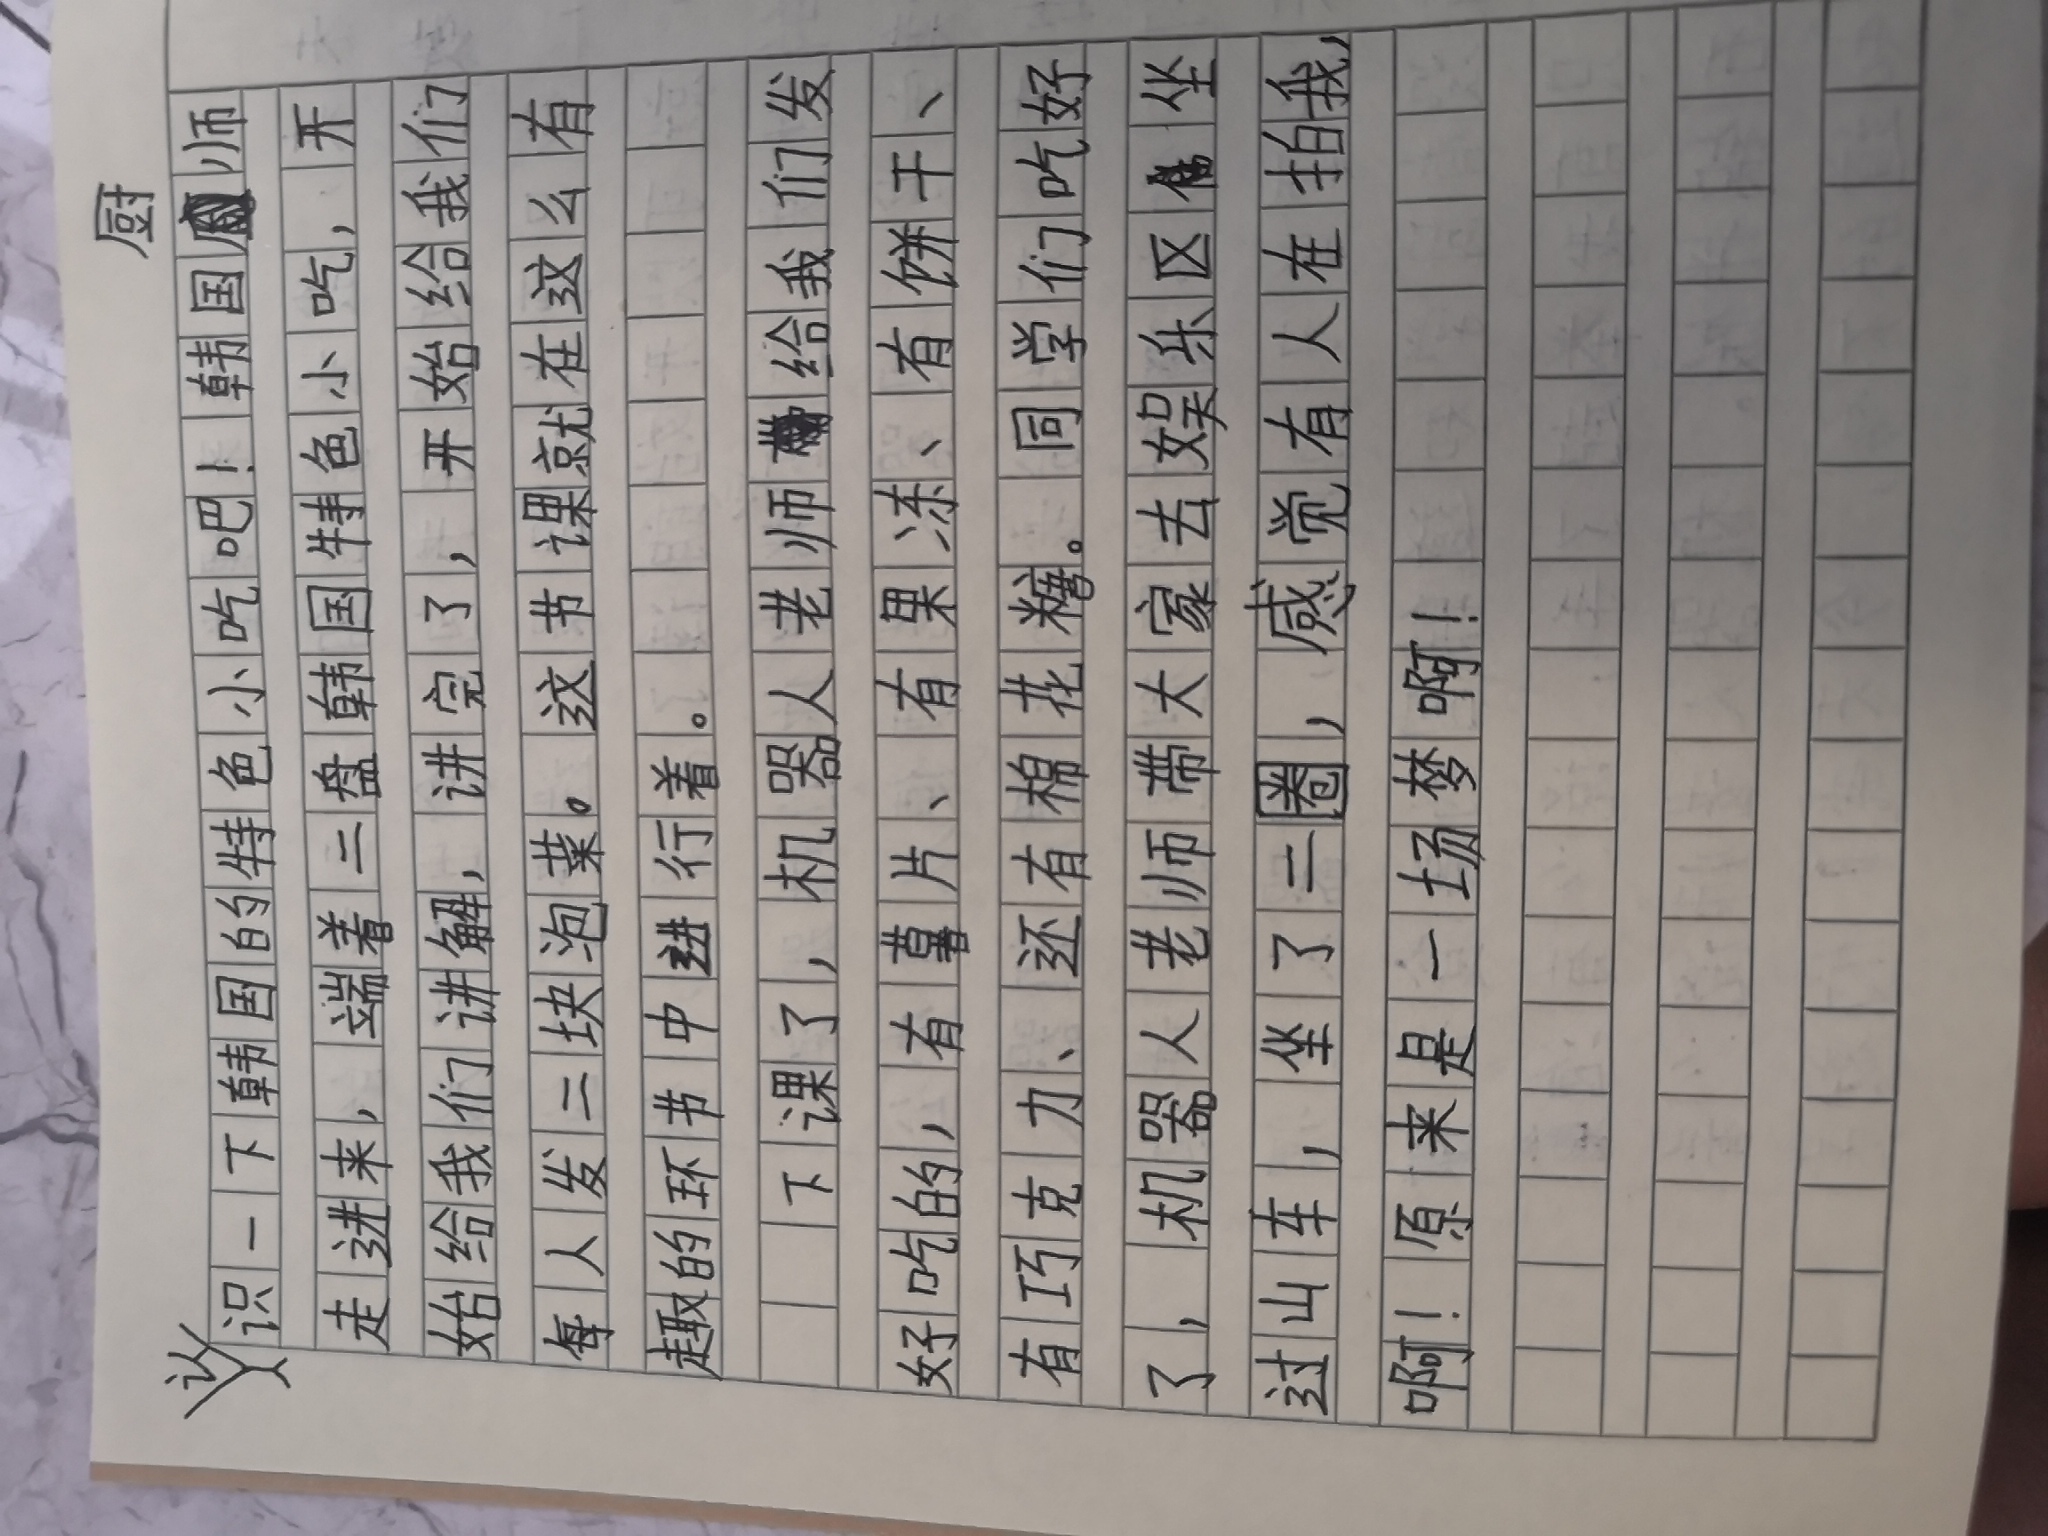 认识一下韩国的特色小吃吧！韩国厨师
走进来，端着二盘韩国特色小吃，开
始给我们讲解，讲完了，开始给我们
每人发二块泡菜。这节课就在这么有
趣的环节中进行着。
下课了，机器人老师给我们发
好吃的，有薯片、有果冻、有饼干、
有巧克力、还有棉花糖。同学们吃好
了，机器人老师带大家去娱乐区坐
过山车，坐了二圈，感觉有人在拍我，
啊！原来是一场梦啊！